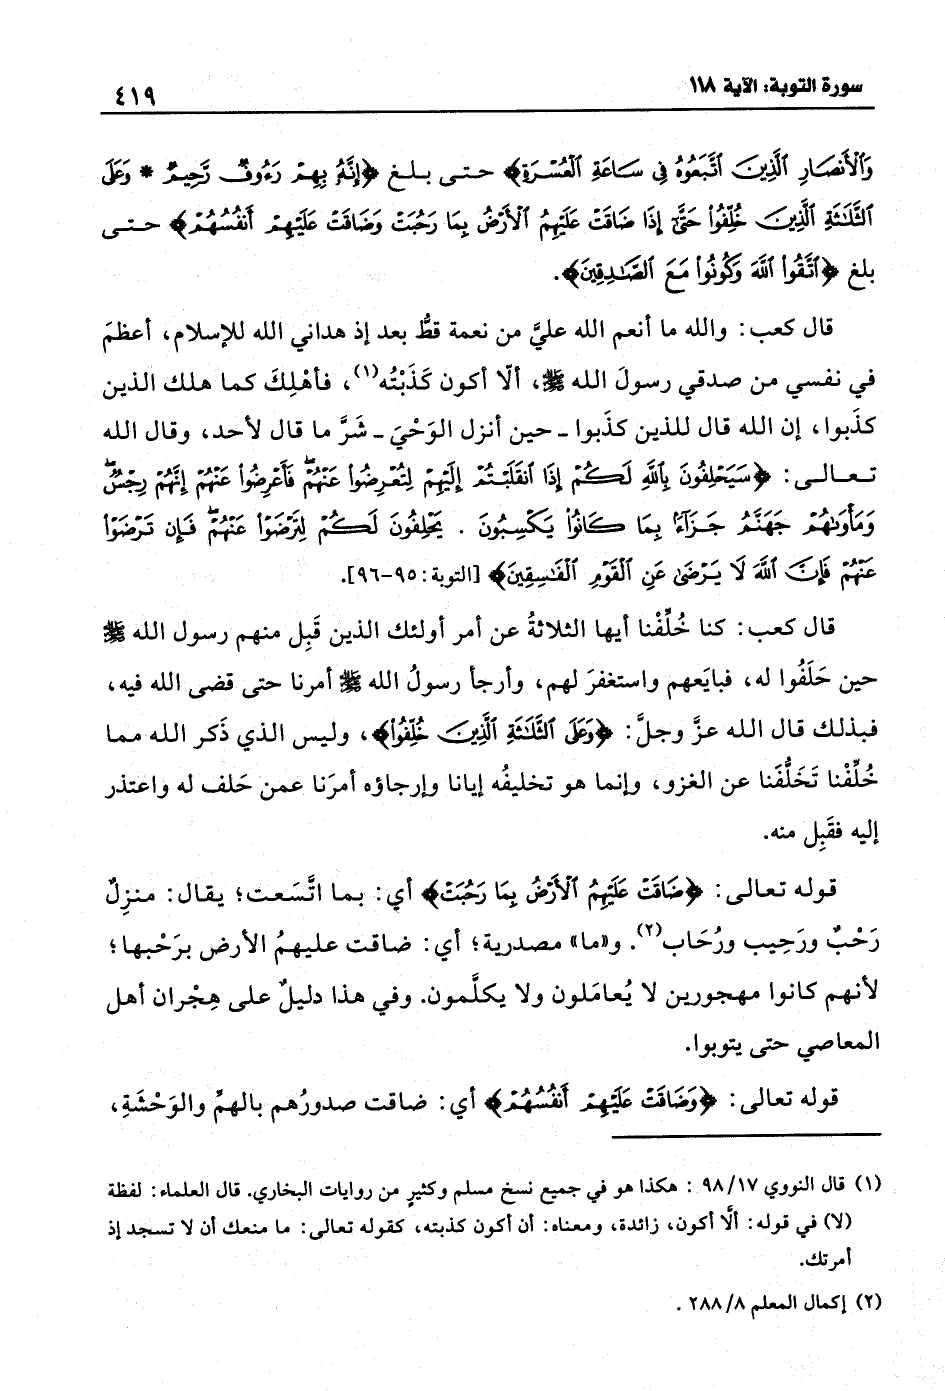 سورة التوبة: الآية ١١٨
٤١٩
وَالْأَنصَارِ الَّذِينَ اتَّبَعُوهُ فِي سَاعَةِ الْعُسْرَةِ﴾ حتى بلغ ﴿إِنَّهُ بِهِمْ رَءُوفٌ رَّحِيمٌ * وَعَلَى
الثَّلَاثَةِ الَّذِينَ خُلِّفُوا حَتَّىٰ إِذَا ضَاقَتْ عَلَيْهِمُ الْأَرْضُ بِمَا رَحُبَتْ وَضَاقَتْ عَلَيْهِمْ أَنفُسُهُمْ﴾ حتى
بلغ ﴿اتَّقُوا اللَّهَ وَكُونُوا مَعَ الصَّادِقِينَ﴾.
قال كعب: والله ما أنعم الله عليَّ من نعمة قطُّ بعد إذ هداني الله للإسلام، أعظمَ
في نفسي من صدقي رسولَ الله ﷺ، ألّا أكون كَذَبْتُه(١)، فأهْلِكَ كما هلك الذين
كذَبوا، إن الله قال للذين كذَبوا ـ حين أنزل الوَحْيَ ـ شَرَّ ما قال لأحد، وقال الله
تعالى: ﴿سَيَحْلِفُونَ بِاللَّهِ لَكُمْ إِذَا انقَلَبْتُمْ إِلَيْهِمْ لِتُعْرِضُوا عَنْهُمْ ۖ فَأَعْرِضُوا عَنْهُمْ إِنَّهُمْ رِجْسٌ ۖ
وَمَأْوَاهُمْ جَهَنَّمُ جَزَاءً بِمَا كَانُوا يَكْسِبُونَ . يَحْلِفُونَ لَكُمْ لِتَرْضَوْا عَنْهُمْ ۖ فَإِن تَرْضَوْا
عَنْهُمْ فَإِنَّ اللَّهَ لَا يَرْضَىٰ عَنِ الْقَوْمِ الْفَاسِقِينَ﴾ [التوبة: ٩٥-٩٦].
قال كعب: كنا خُلِّفْنا أيها الثلاثةُ عن أمر أولئك الذين قَبِل منهم رسول الله ﷺ
حين حَلَفُوا له، فبايَعهم واستغفرَ لهم، وأرجأ رسولُ الله ﷺ أمرنا حتى قضى الله فيه،
فبذلك قال الله عزَّ وجلَّ: ﴿وَعَلَى الثَّلَاثَةِ الَّذِينَ خُلِّفُوا﴾، وليس الذي ذَكر الله مما
خُلِّفْنا تَخَلُّفَنا عن الغزو، وإنما هو تخليفُه إيانا وإرجاؤه أمرَنا عمن حَلف له واعتذر
إليه فقَبِل منه.
قوله تعالى: ﴿ضَاقَتْ عَلَيْهِمُ الْأَرْضُ بِمَا رَحُبَتْ﴾ أي: بما اتَّسَعت؛ يقال: منزِلٌ
رَحْبٌ ورَحِيب ورُحَاب(٢). و«ما» مصدرية؛ أي: ضاقت عليهمُ الأرض برَحْبها؛
لأنهم كانوا مهجورين لا يُعامَلون ولا يكلَّمون. وفي هذا دليلٌ على هِجْران أهل
المعاصي حتى يتوبوا.
قوله تعالى: ﴿وَضَاقَتْ عَلَيْهِمْ أَنفُسُهُمْ﴾ أي: ضاقت صدورُهم بالهمِّ والوَحْشَةِ،
(١) قال النووي ٩٨/١٧ : هكذا هو في جميع نسخ مسلم وكثيرٍ من روايات البخاري. قال العلماء: لفظة
(لا) في قوله: ألَّا أكون، زائدة، ومعناه: أن أكون كذبته، كقوله تعالى: ما منعك أن لا تسجد إذ
أمرتك.
(٢) إكمال المعلم ٢٨٨/٨ .